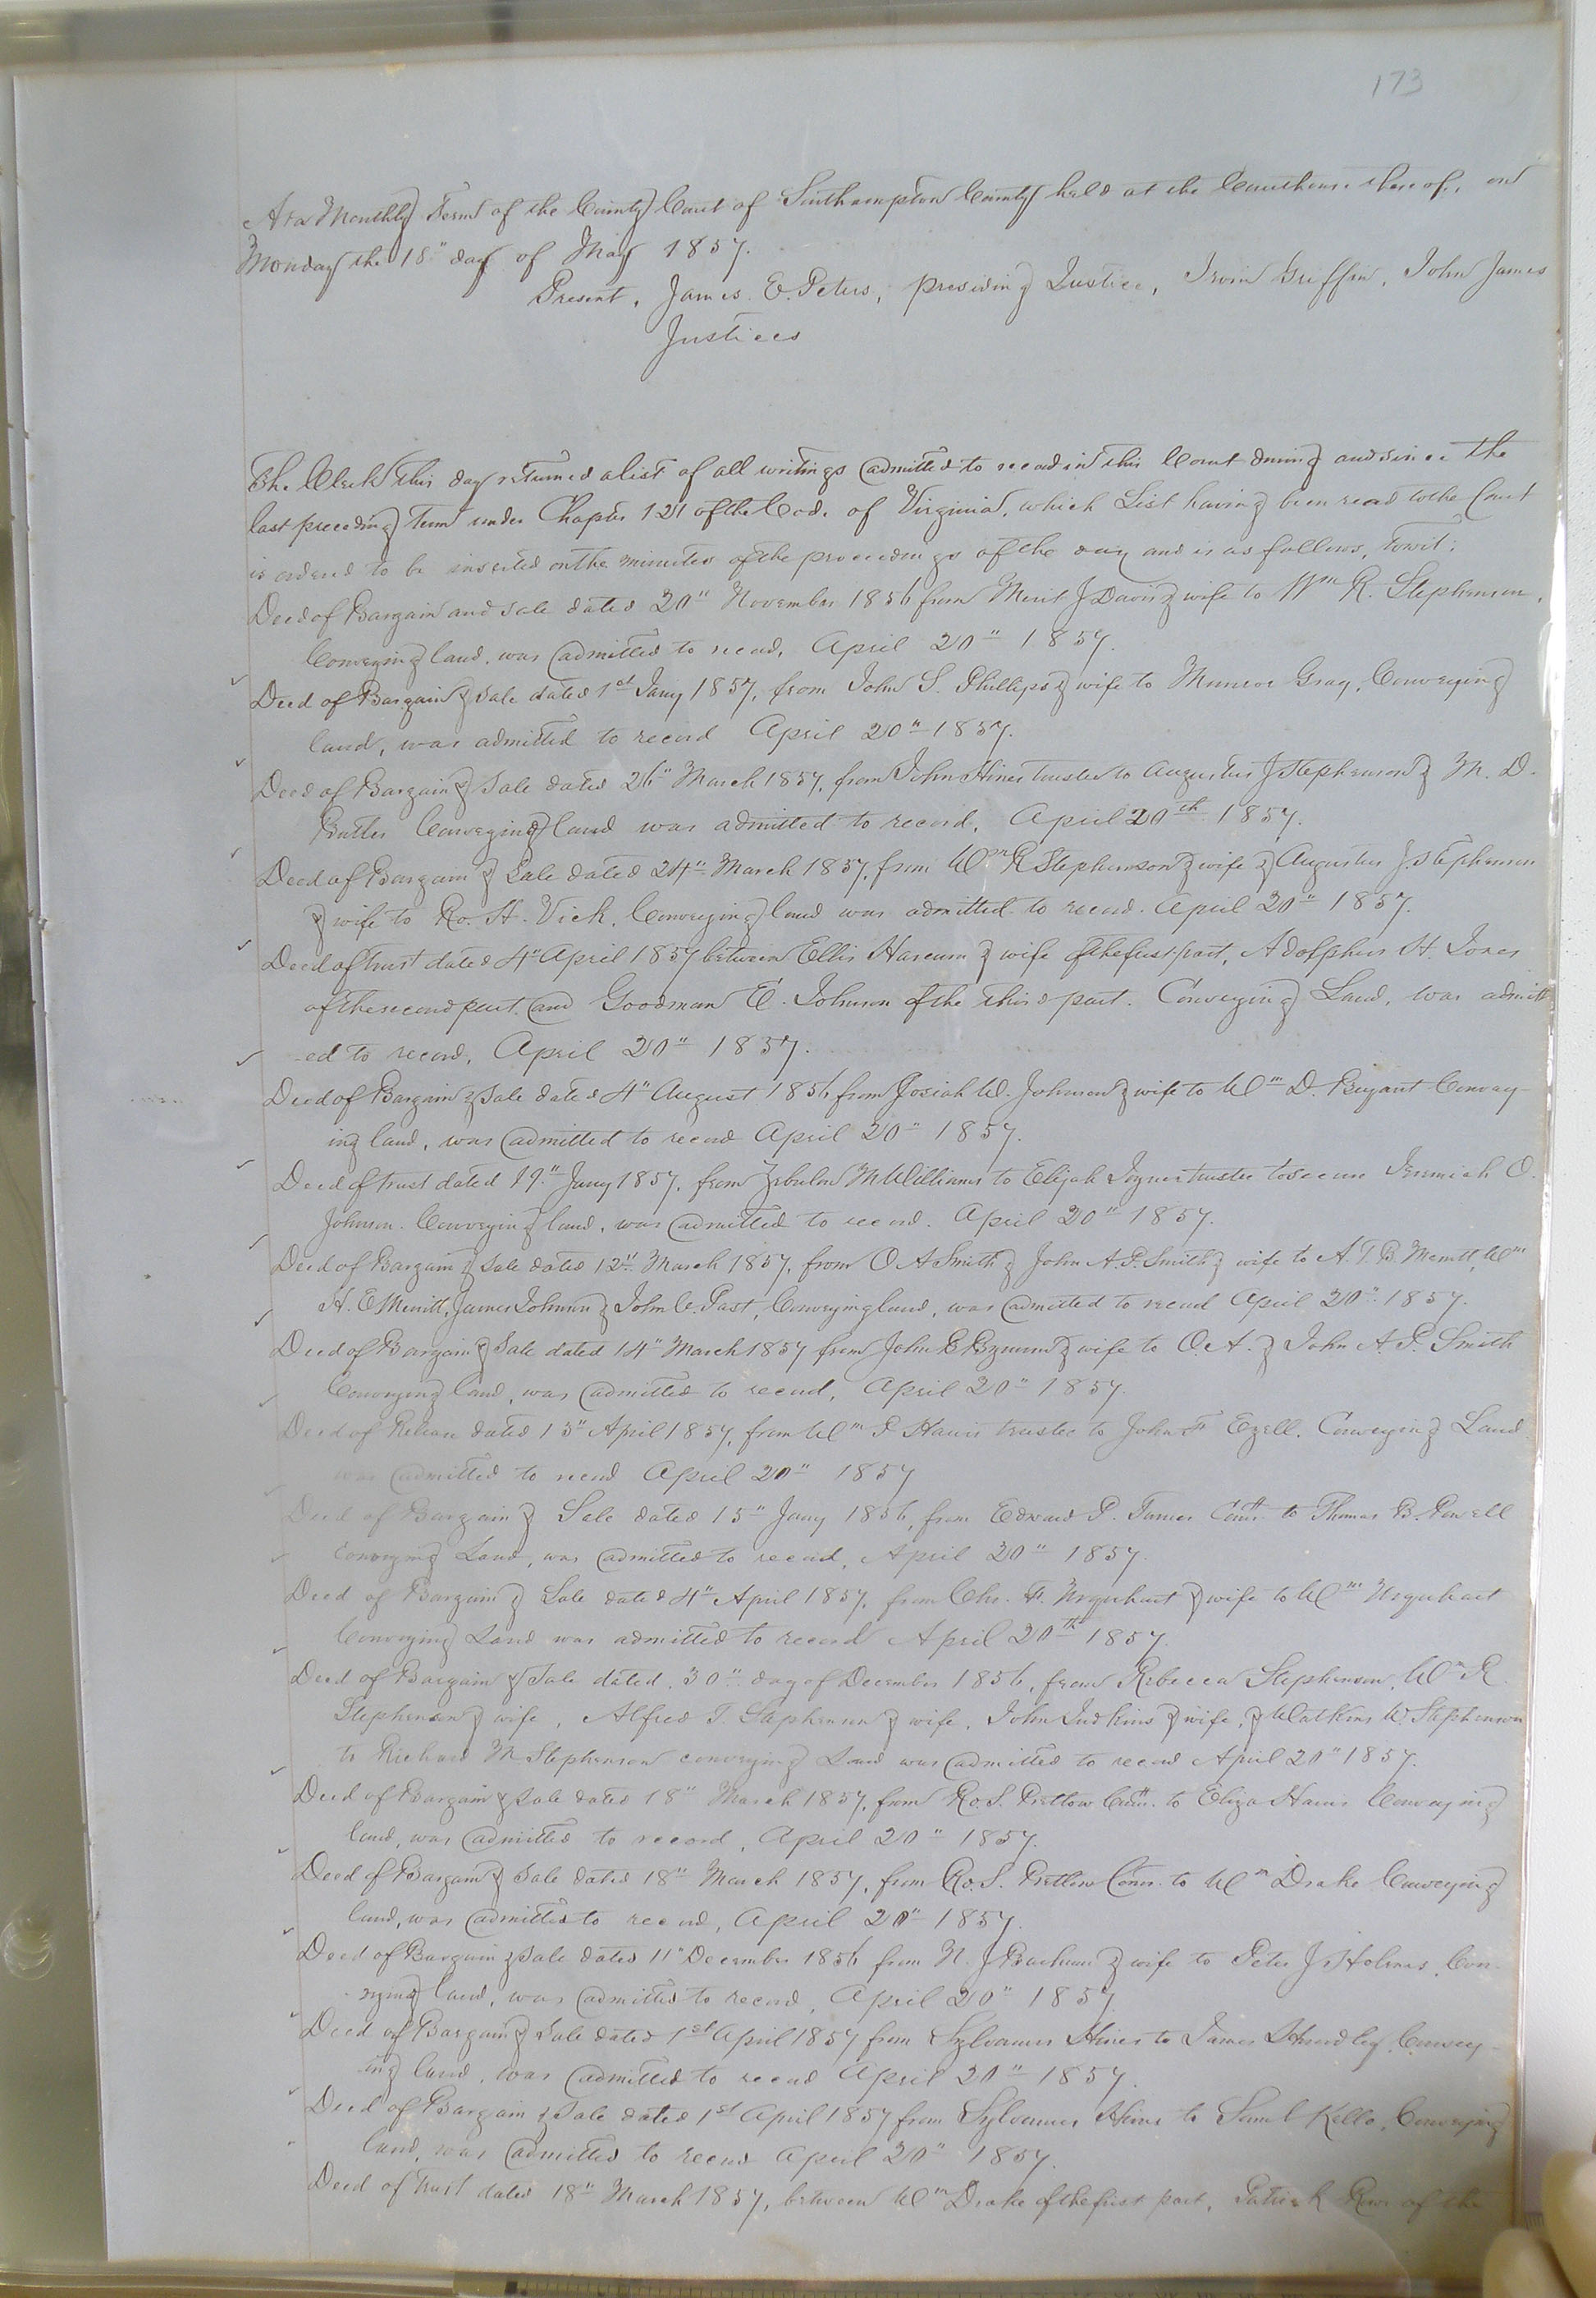 173
At a Monthly Term of the County Court of Southampton County held at the Courthouse thereof, on
Monday the 18" day of May 1857.
Present, James E. Peters, presiding Justice, Irvin Griffin, John James
Justices
The Clerk this day returned a list of all writings admitted to record in this Court during and since the
last preceding Term under Chapter 121 of the Code of Virginia, which List having been read to the Court
is ordered to be inserted on the minutes of the proceedings of the day and is as follows, towit:
Deed of Bargain and sale dated 20" November 1856 from Merit J Davis & wife to Wm R. Stephenson,
Conveying land, was admitted to record, April 20" 1857.
Deed of Bargain & Sale dated 1st Jany 1857, from John S. Phillips & wife to Munroe Gray, Conveying
land, was admitted to record April 20" 1857.
Deed of Bargain & Sale dated 26" March 1857, from John Hines trustee to Augustus J Stephenson & M. D.
Butler Conveying land was admitted to record, April 20th 1857.
Deed of Bargain & Sale dated 24" March 1857, from Wm R Stephenson & wife & Augustus J. Stephenson
& wife to Ro. H. Vick, Conveying land was admitted to record. April 20" 1857.
Deed of trust dated 4" April 1857 between Ellis Harcum & wife of the first part, Adolphus H. Jones
of the second part and Goodman E. Johnson of the third part. Conveying Land, was admitt
-ed to record, April 20" 1857.
Deed of Bargain & Sale dated 4" August 1856 from Josiah W. Johnson & wife to Wm D. Bryant Convey-
ing land, was admitted to record April 20" 1857.
Deed of trust dated 19" Jany 1857, from Zebulon M Williams to Elijah Joyner trustee to secure Jeremiah O.
Johnson. Conveying land, was admitted to record. April 20" 1857.
Deed of Bargain & Sale dated 12" March 1857, from O A Smith & John A. P. Smith & wife to A. T. B. Merritt, Wm
H. E Merritt, James Johnson & John C. Past, Conveying land, was admitted to record April 20" 1857.
Deed of Bargain & Sale dated 14" March 1857 from John B Bynum & wife to O. A. & John A. P. Smith
Conveying land, was admitted to record, April 20" 1857.
Deed of Release dated 15" April 1857, from Wm P Harris trustee to John F Ezell. Conveying Land
was admitted to record April 20" 1857
Deed of Bargain & Sale dated 15" Jany 1856, from Edward P. James to Thomas B. Powell
Conveying Land, was admitted to record, April 20" 1857.
Deed of Bargain & Sale dated 4" April 1857, from Chs. F. Urquhart & wife to Wm Urquhart
Conveying Land was admitted to record April 20th 1857.
Deed of Bargain & Sale dated, 30" day of December 1856, from Rebecca Stephenson, Wm R.
Stephenson & wife, Alfred T. Stephenson & wife, John Judkins & wife, & Watkins W. Stephenson
to Richard M Stephenson conveying Land was admitted to record April 20" 1857.
Deed of Bargain & Sale dated 18" March 1857, from Ro. S. Pretlow Comr. to Eliza Harris Conveying
land, was admitted to record, April 20" 1857.
Deed of Bargain & Sale dated 18" March 1857, from Ro. S. Pretlow Comr. to Wm Drake Conveying
land, was admitted to record, April 20" 1857.
Deed of Bargain & Sale dated 11" December 1856 from N. J Barham & wife to Peter J Holmes, Con-
veying land, was admitted to record, April 20" 1857
Deed of Bargain & Sale dated 1st April 1857 from Sylvanus Hines to James Hundley, Convey-
ing land, was admitted to record April 20" 1857.
Deed of Bargain & Sale dated 1st April 1857 from Sylvanus Hines to Saml Kello, Conveying
land, was admitted to record April 20" 1857.
Deed of trust dated 18" March 1857, between Wm Drake of the first part, Patrick of the